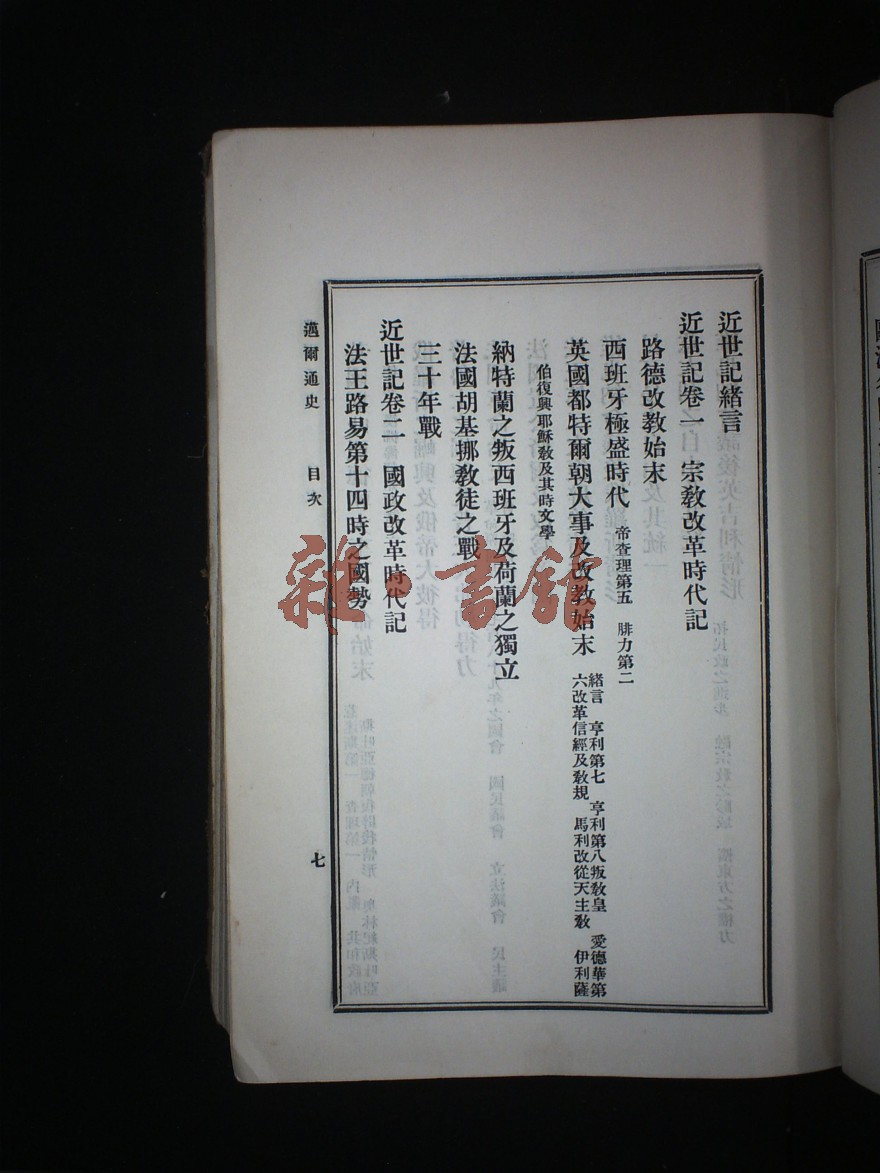 近世記緒言
近世記卷一 宗教改革時代記
路德改教始末
西班牙極盛時代 帝查理第五 腓力第二
英國都特爾朝大事及改教始末 緒言 亨利第七 亨利第八叛敎皇 愛德華第
六改革信經及敎規 馬利改從天主敎 伊利薩
伯復興耶穌敎及其時文學
納特蘭之叛西班牙及荷蘭之獨立
法國胡基挪敎徒之戰
三十年戰
近世記卷二 國政改革時代記
法王路易第十四時之國勢
邁爾通史 目次 七
雜·書館